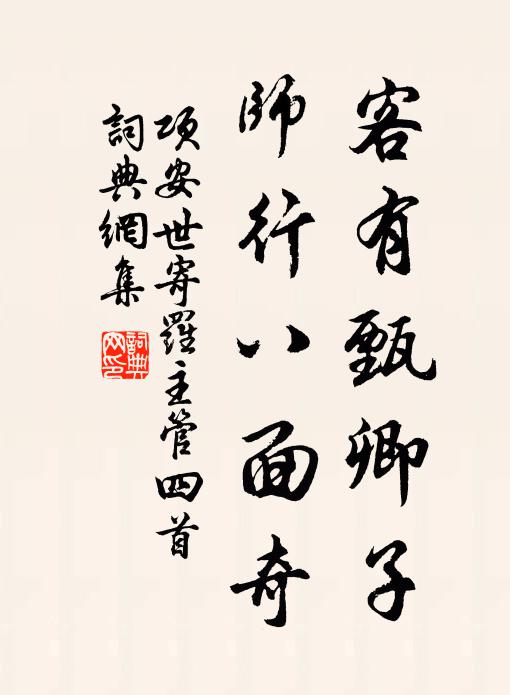 客有甄卿子
師行八面奇
項安世寄羅主管四首
詞典網集
詞典網印